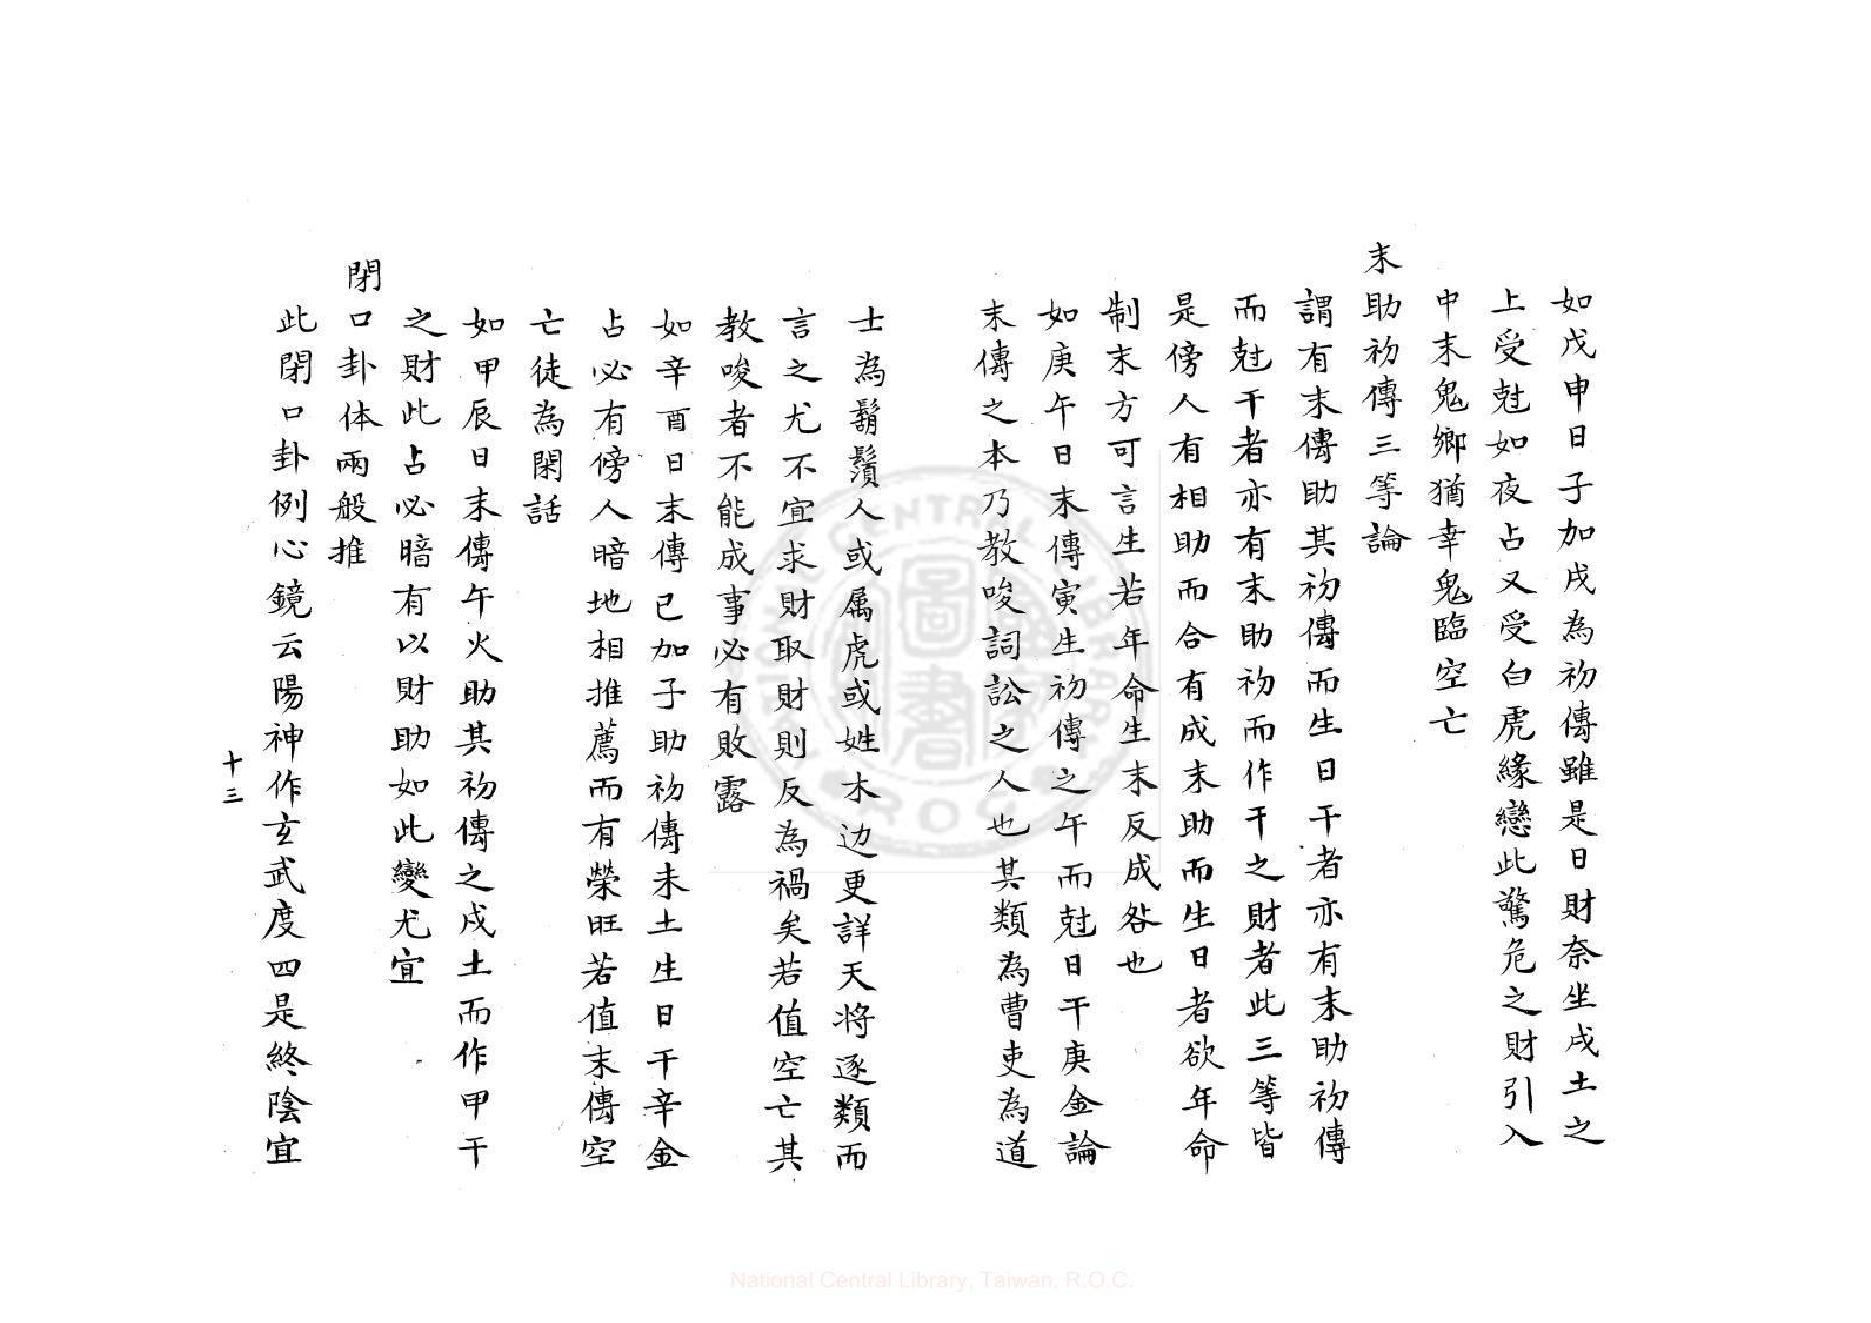 如戊申日子加戌為初傳雖是日財奈坐戌土之
上受尅如夜占又受白虎緣戀此驚危之財引入
中末鬼鄉猶幸鬼臨空亡
末助初傳三等論
謂有末傳助其初傳而生日干者亦有末助初傳
而尅干者亦有末助初而作干之財者此三等皆
是傍人有相助而合有成末助而生日者欲年命
制末方可言生若年命生末反成咎也
如庚午日末傳寅生初傳之午而尅日干庚金論
末傳之本乃教唆詞訟之人也其類為曹吏為道
士為鬍鬚人或属虎或姓木边更詳天将逐類而
言之尤不宜求財取財則反為禍矣若值空亡其
教唆者不能成事必有敗露
如辛酉日末傳已加子助初傳未土生日干辛金
占必有傍人暗地相推薦而有榮旺若值末傳空
亡徒為閑話
如甲辰日末傳午火助其初傳之戌土而作甲干
之財此占必暗有以財助如此變尤宜
閉口卦体兩般推
此閉口卦例心鏡云陽神作玄武度四是終陰宜
十三
National Central Library, Taiwan, R.O.C.